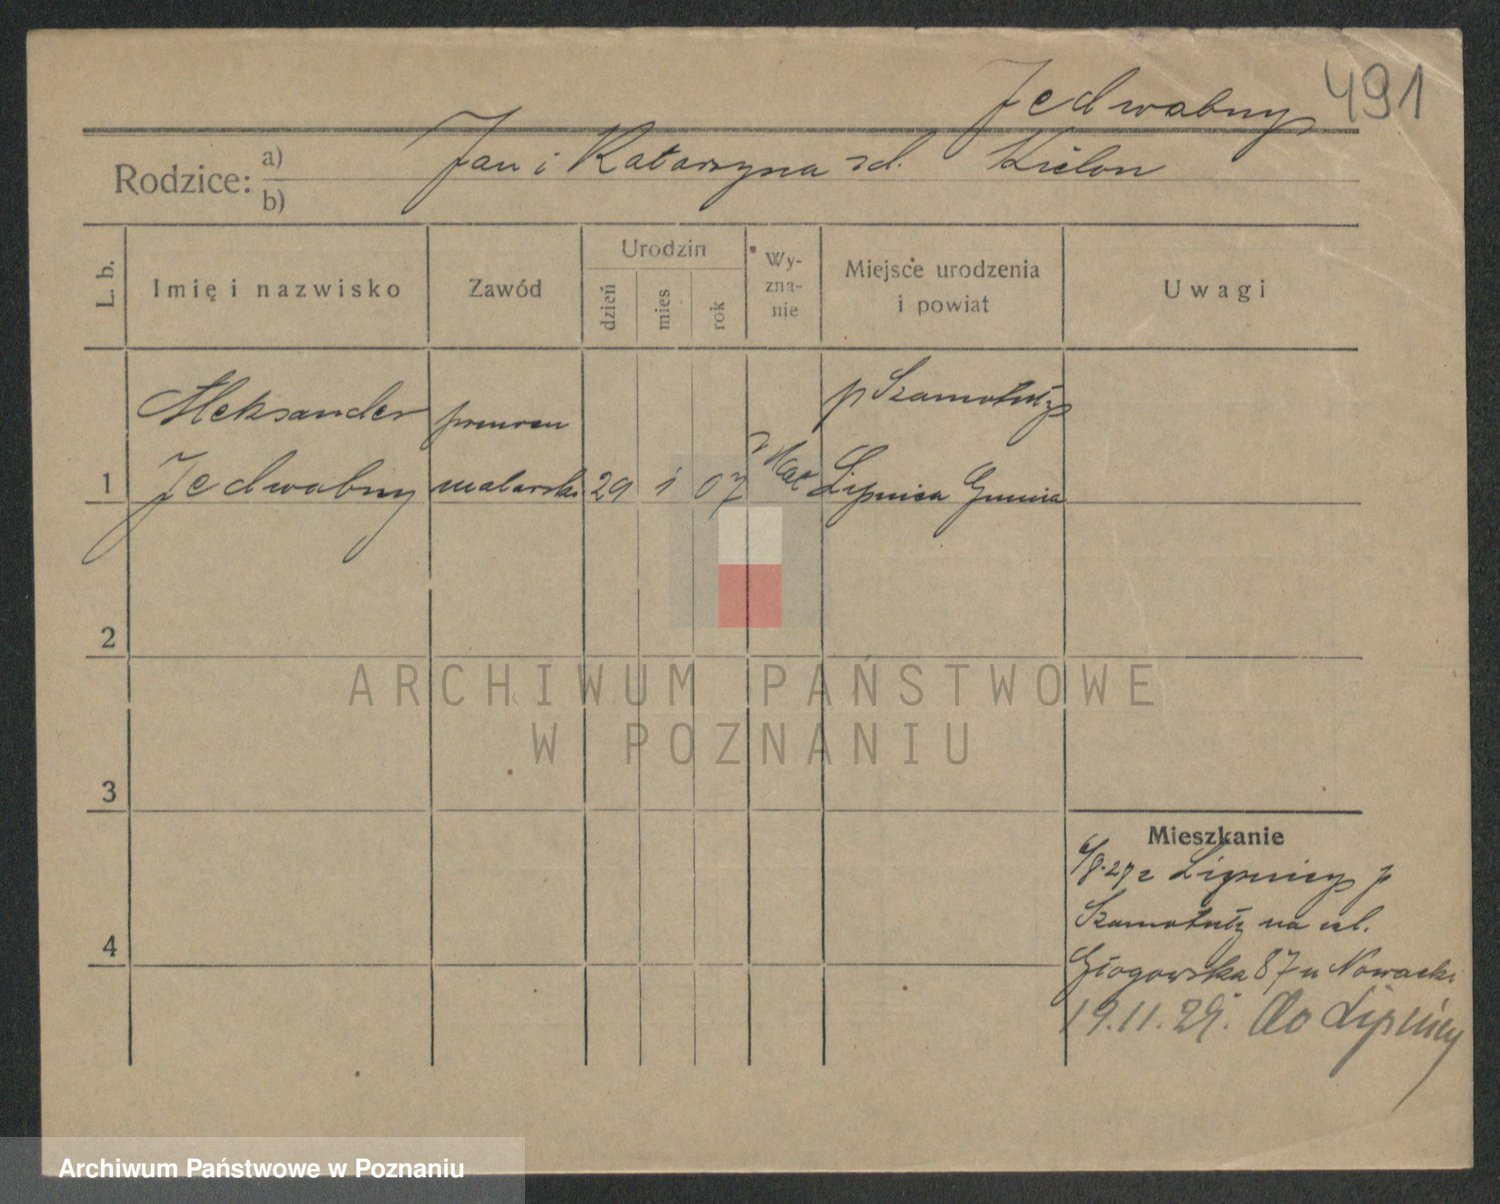 Jedwabny 491
Rodzice: a) Jan i Katarzyna zd. Kielon
b)
L. b.
Imię i nazwisko
Zawód
Urodzin
dzień
mies
rok
Wy-
zna-
nie
Miejsce urodzenia
i powiat
Uwagi
Aleksander
Jedwabny
malarski
29 i 07
Kat
p Szamotuły
Lipnica Gmina
1
2
3
4
Mieszkanie
6/8.27 z Lipnicy p
Szamotuły na ul.
Głogowska 87 u Nowacki
19.11.29. do Lipnicy
ARCHIWUM PAŃSTWOWE
W POZNANIU
Archiwum Państwowe w Poznaniu